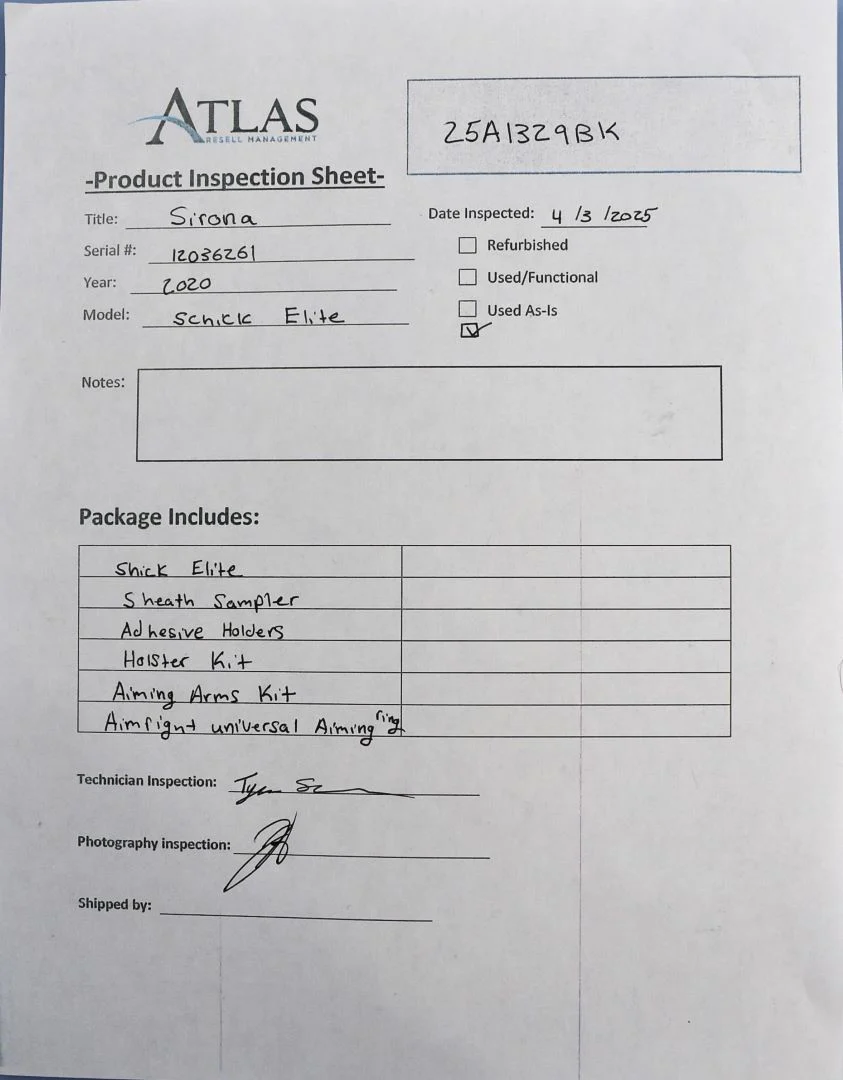 ATLAS
RESELL MANAGEMENT
25A1329BK
-Product Inspection Sheet-
Title: Sirona
Date Inspected: 4/3/2025
Serial #: 12036261
Refurbished
Year: 2020
Used/Functional
Model: Schick Elite
Used As-Is
Notes:
Package Includes:
Shick Elite
Sheath Sampler
Adhesive Holders
Holster Kit
Aiming Arms Kit
Aimright universal Aiming ring
Technician Inspection:
Photography inspection:
Shipped by: